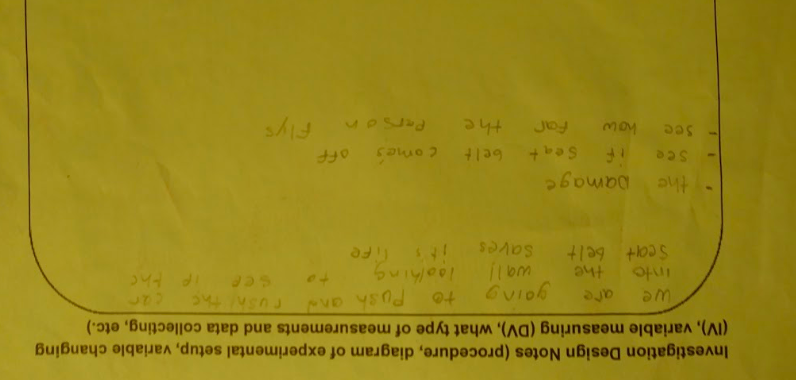 Investigation Design Notes (procedure, diagram of experimental setup, variable changing
(IV), variable measuring (DV), what type of measurements and data collecting, etc.)
we are going to Push and rush the car
into the wall looking to see if the
seat belt saves it's life
- the Damage
- see if seat belt comes off
- see how far the Person Flys